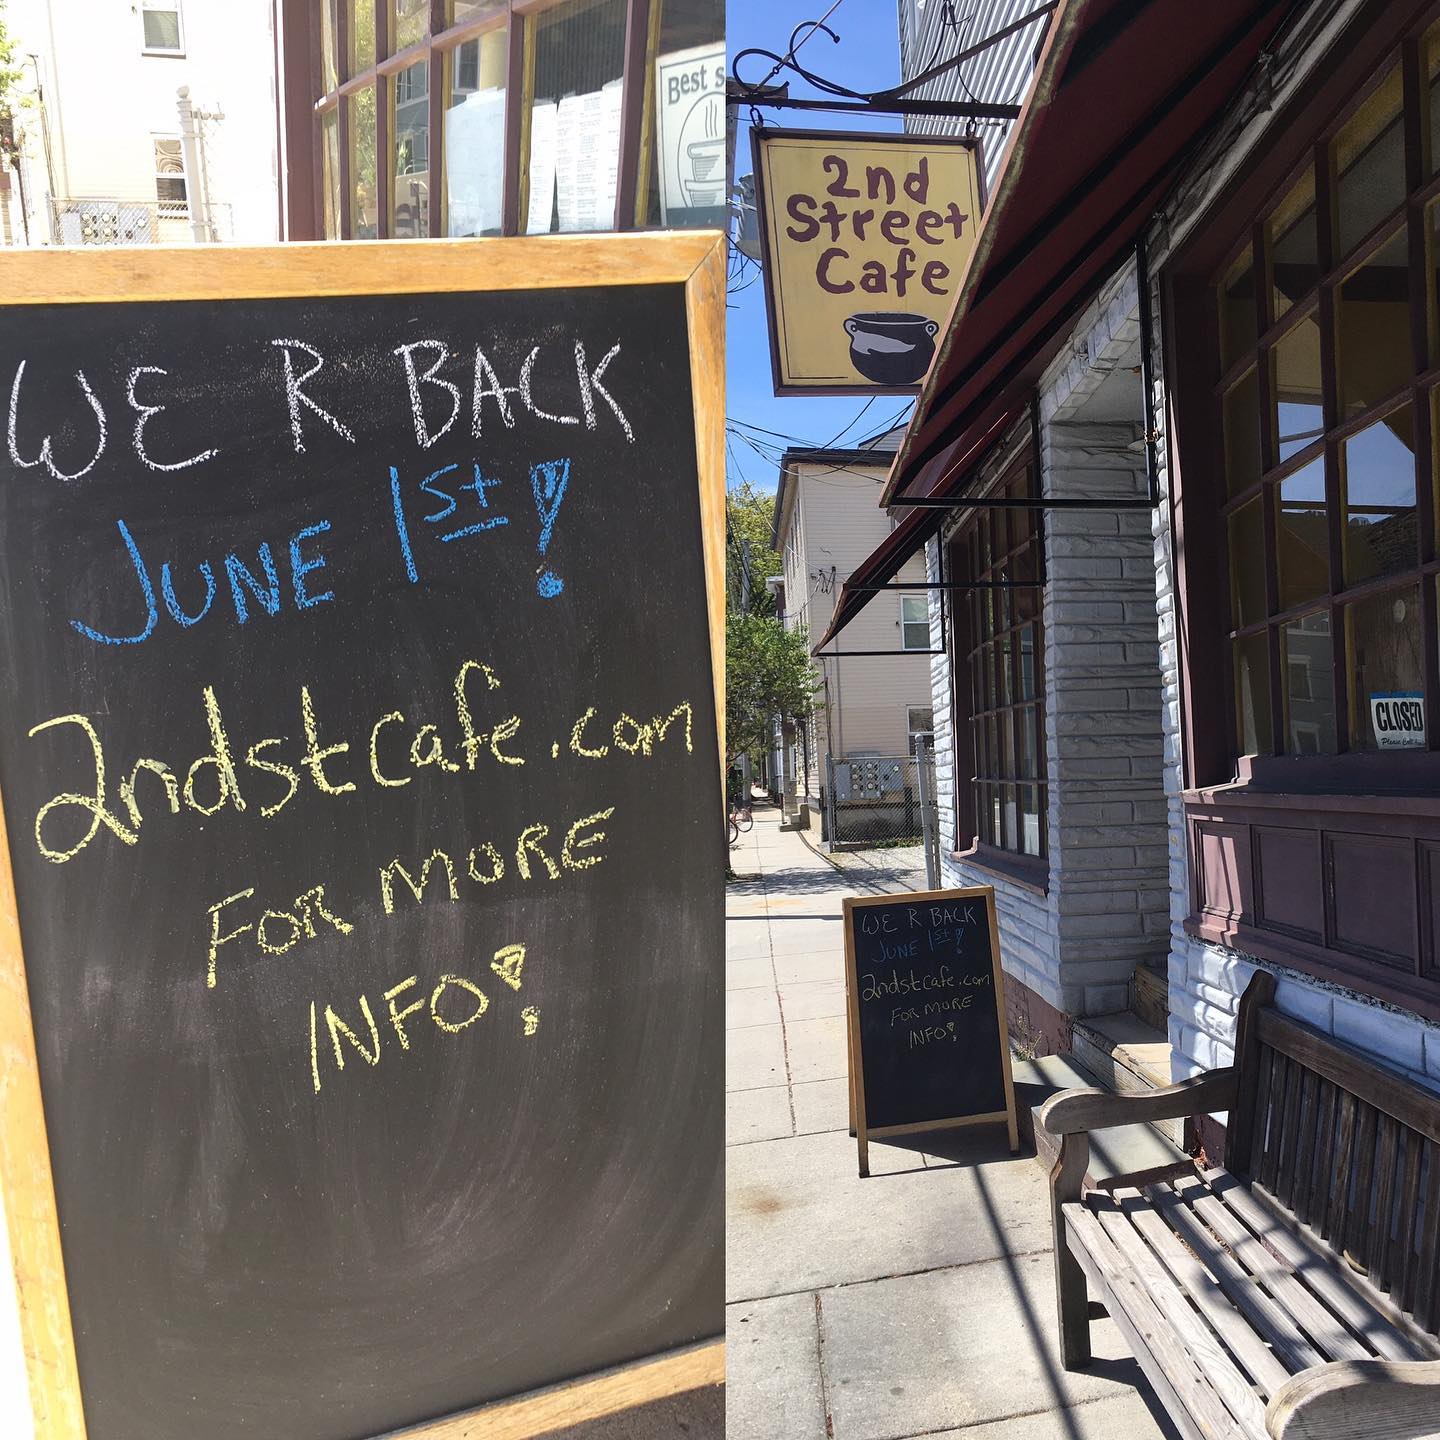 Best
WE R BACK
JUNE 1st!
2ndstcafe.com
FOR MORE
INFO!
2nd
Street
Cafe
CLOSED
Please Call
WE R BACK
JUNE 1st!
2ndstcafe.com
FOR MORE
INFO!